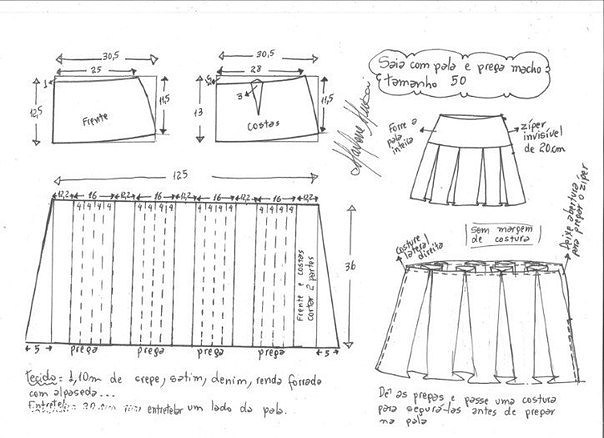 Saia com pala e prega macho
tamanho 50
30,5
25
1
12,5
11,5
Frente
30,5
28
3
13
11,5
costas
Forre a
pala
inteira
zíper
invisível
de 20cm
125
12,2 16 12,2 16 12,2 16 12,2 16 12,2
4 4 4 4 4 4 4 4 4 4 4 4 4 4 4 4
36
Frente e costas
cortar 2 partes
5 prega prega prega prega 5
sem margem
de costura
costure
lateral
direita
Deixe abertura
para prepar o zíper
Tecido = 1,10m de crepe, satim, denim, renda forrada
com alpaseda...
Entretela = 30 cm para entretelar um lado da pala.
Dê as pregas e passe uma costura
para segurá-las antes de prepar
na pala